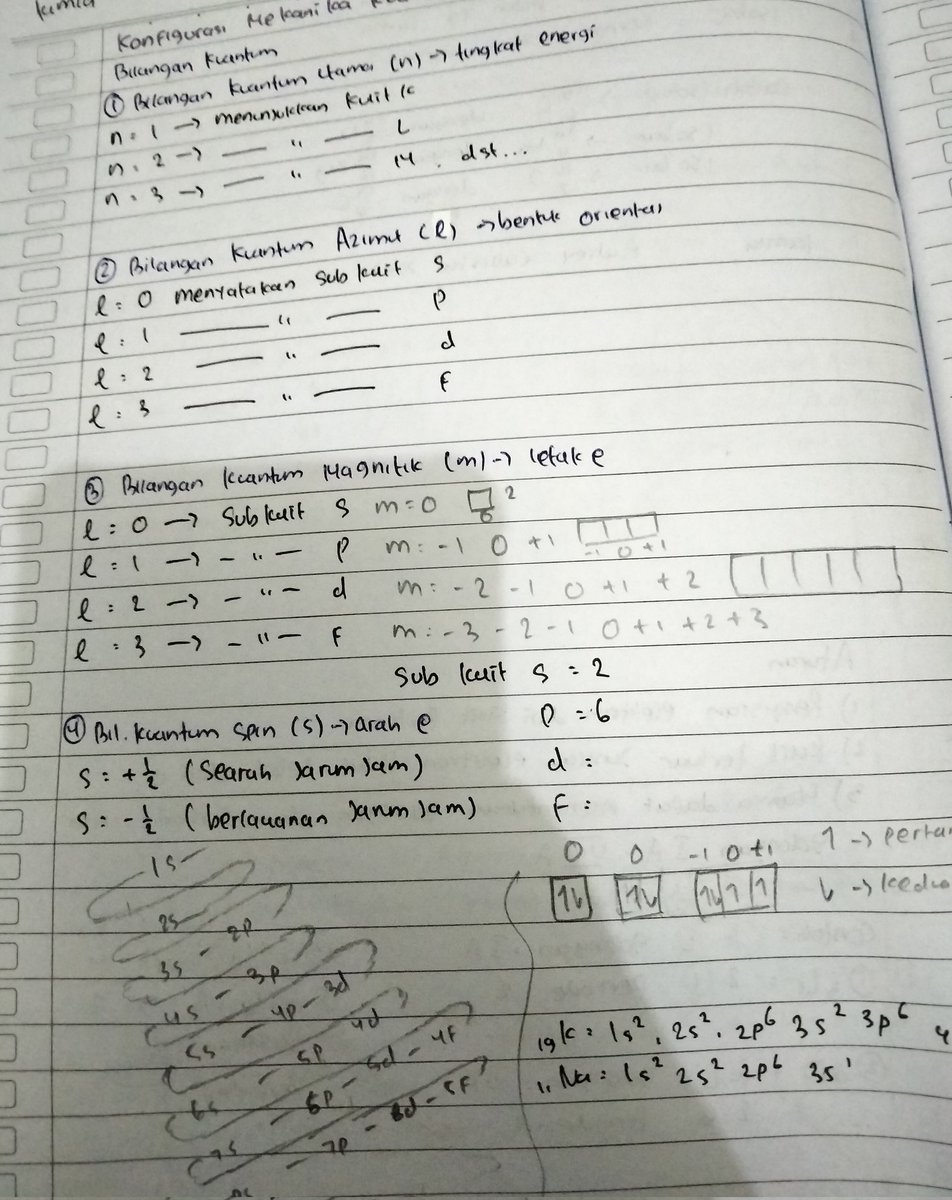 Kimia
Konfigurasi Mekanika
Bilangan Kuantum
① Bilangan Kuantum Utama (n) → tingkat energi
n = 1 → menunjukkan kulit K
n = 2 → — " — L
n = 3 → — " — M. dst...
② Bilangan Kuantum Azimut (l) → bentuk orientasi
l = 0 menyatakan Sub kulit s
l = 1 — " — p
l = 2 — " — d
l = 3 — " — f
③ Bilangan Kuantum Magnitik (m) → letak e
l = 0 → Sub kulit s m = 0 2
0
l = 1 → - " - p m = -1 0 +1
-1 0 +1
l = 2 → - " - d m = -2 -1 0 +1 +2
l = 3 → - " - f m = -3 -2 -1 0 +1 +2 +3
Sub kulit s = 2
④ Bil. Kuantum Spin (s) → arah e p = 6
s = +½ (Searah Jarum Jam) d =
s = -½ (berlawanan Jarum Jam) f =
0 0 -1 0 +1 ↿ → perta
↿⇂ ↿⇂ ↿⇂ ↿ ↿ ⇂ → kedua
1s
2s - 2p
3s - 3p - 3d
4s - 4p - 4d - 4f
5s - 5p - 5d - 5f
6s - 6p - 6d
7s - 7p
19K = 1s² 2s² 2p⁶ 3s² 3p⁶ 4
11Na = 1s² 2s² 2p⁶ 3s¹